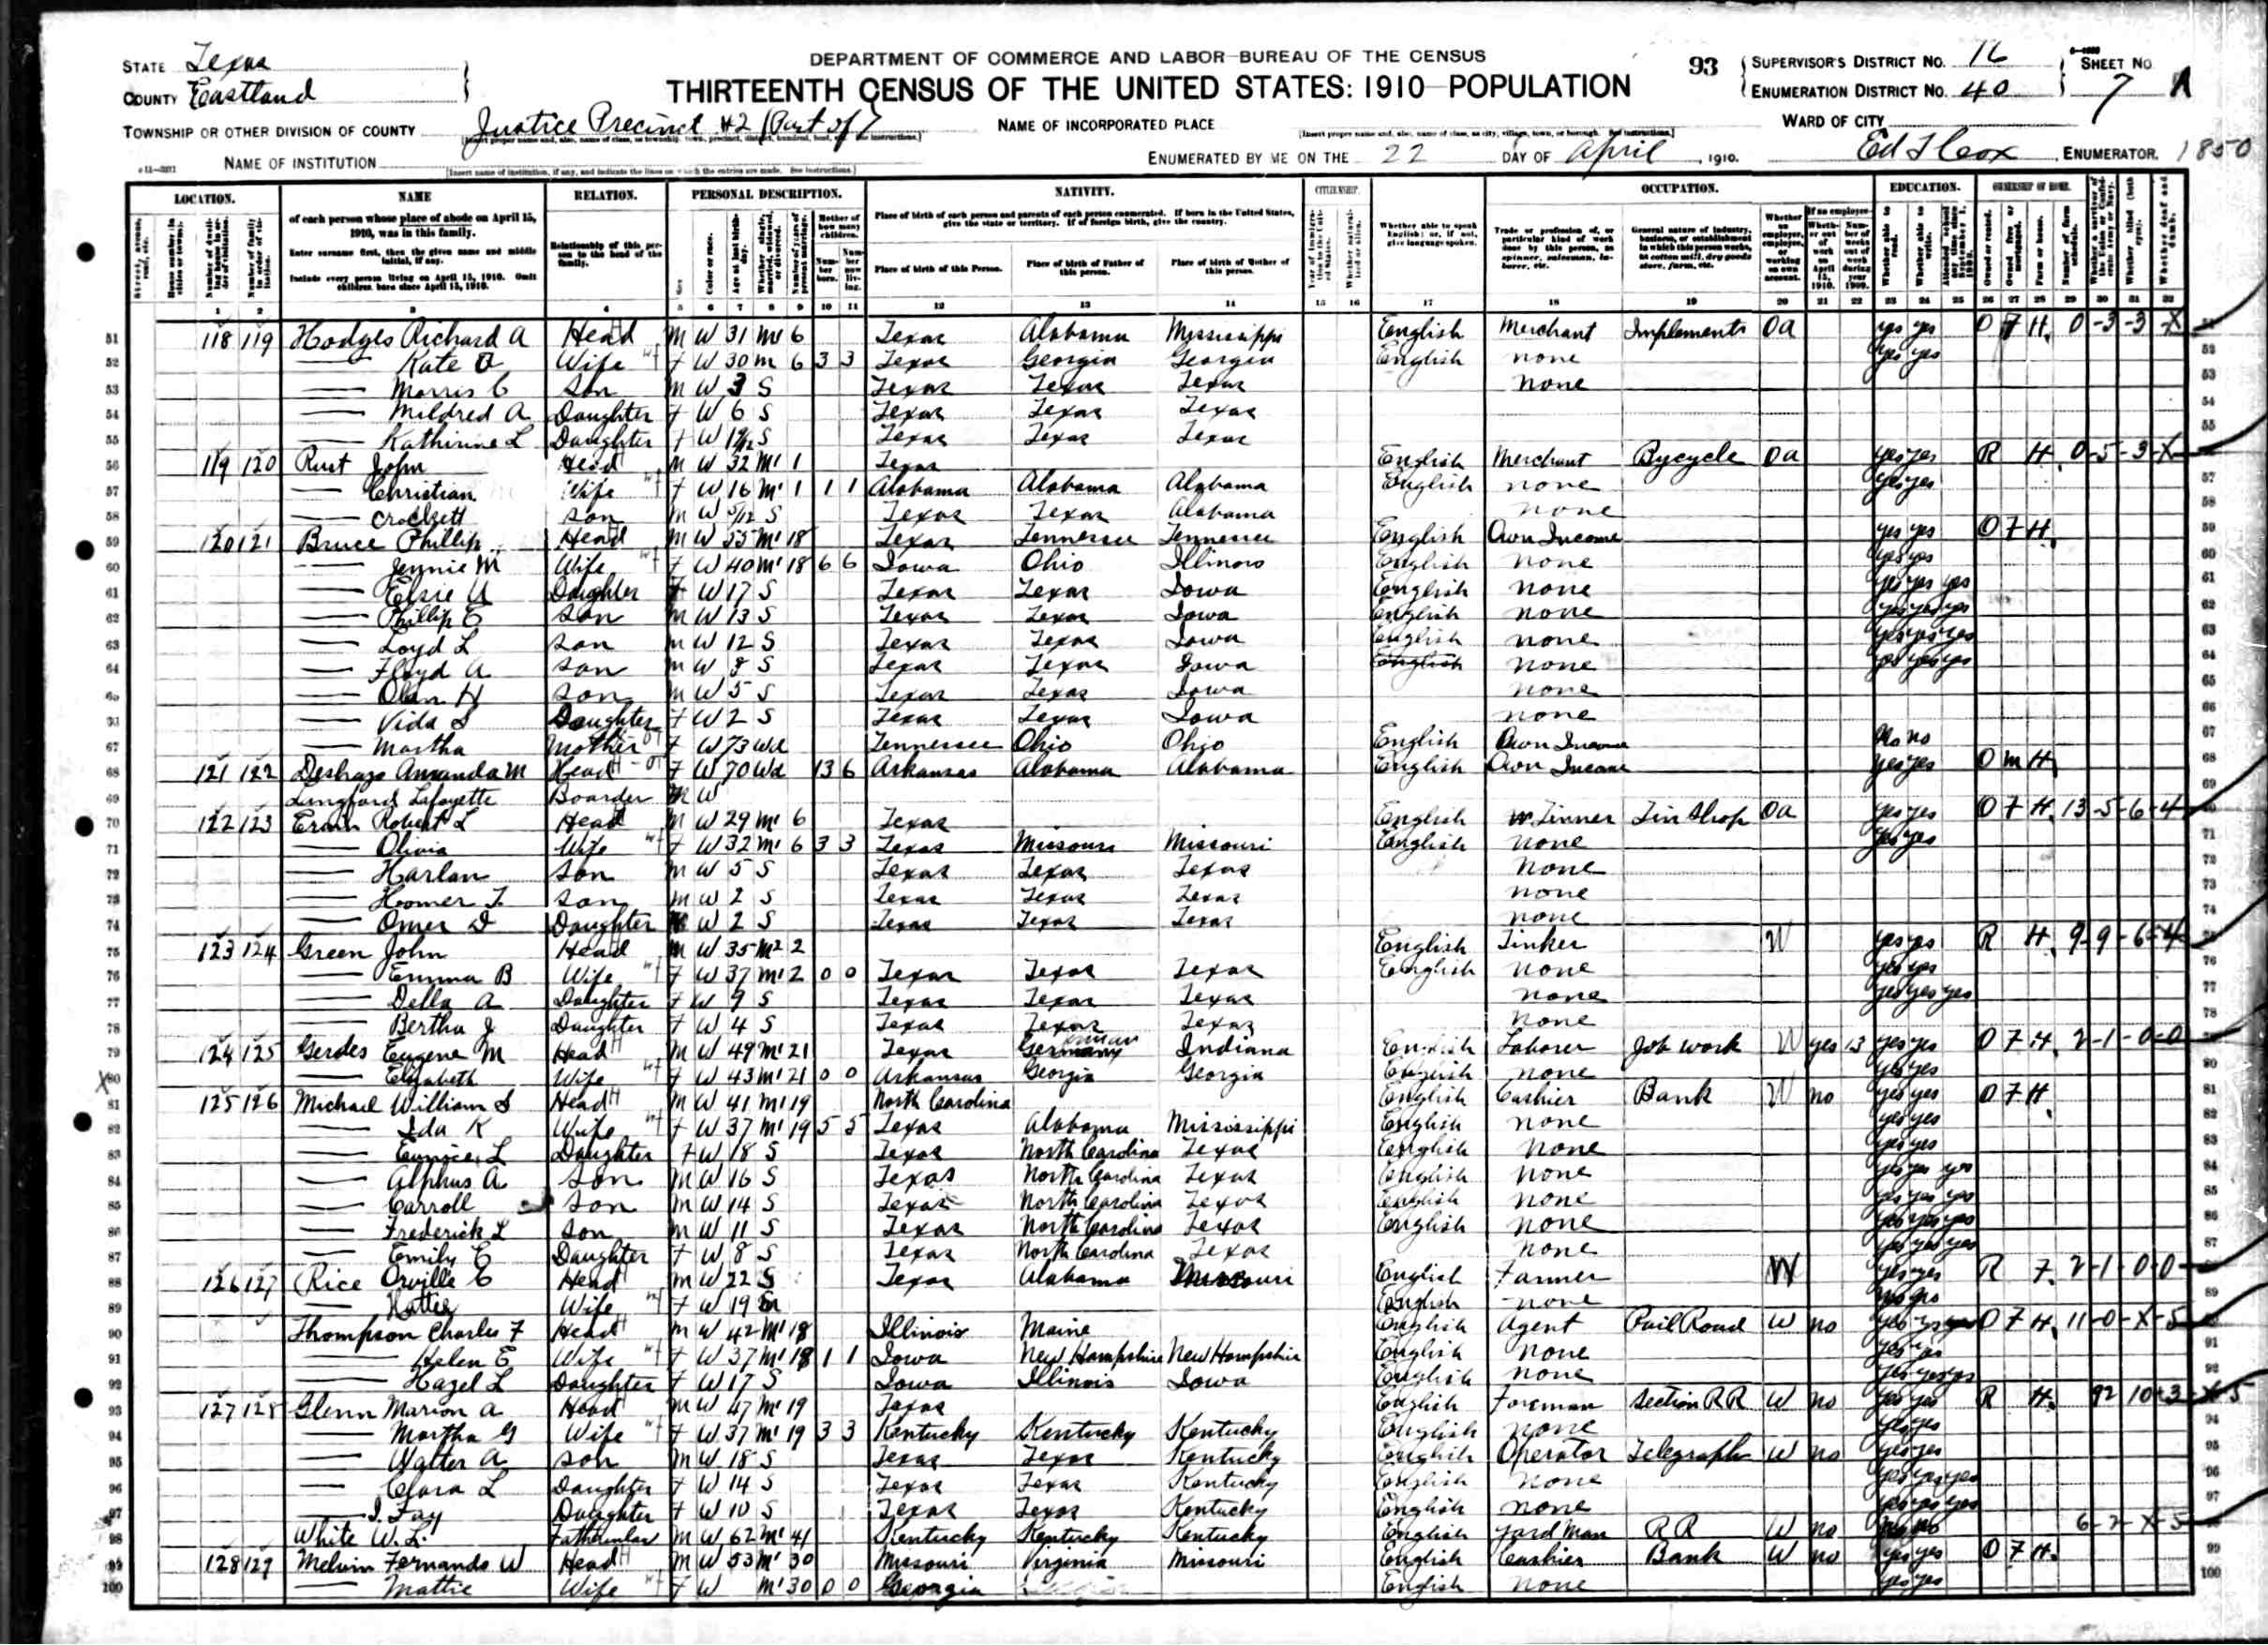 DEPARTMENT OF COMMERCE AND LABOR—BUREAU OF THE CENSUS
THIRTEENTH CENSUS OF THE UNITED STATES: 1910—POPULATION
STATE Texas
COUNTY Eastland
TOWNSHIP OR OTHER DIVISION OF COUNTY Justice Precinct #2 (Part of)
NAME OF INCORPORATED PLACE
NAME OF INSTITUTION
ENUMERATED BY ME ON THE 22 DAY OF April, 1910.
93
SUPERVISOR'S DISTRICT NO. 16
ENUMERATION DISTRICT NO. 40
SHEET NO. 7 A
WARD OF CITY
Ed T Cox, ENUMERATOR. 1850
LOCATION. NAME RELATION. PERSONAL DESCRIPTION. NATIVITY. CITIZENSHIP. OCCUPATION. EDUCATION. OWNERSHIP OF HOME.
of each person whose place of abode on April 15, 1910, was in this family.
Enter surname first, then the given name and middle initial, if any.
Include every person living on April 15, 1910. Omit children born since April 15, 1910.
Relationship of this person to the head of the family.
Place of birth of each person and parents of each person enumerated. If born in the United States, give the state or territory. If of foreign birth, give the country.
Place of birth of this Person. Place of birth of Father of this person. Place of birth of Mother of this person.
Whether able to speak English; or, if not, give language spoken.
1 2 3 4 5 6 7 8 9 10 11 12 13 14 15 16 17 18 19 20 21 22 23 24 25 26 27 28 29 30 31 32
51 118 119 Hodges Richard A Head M W 31 M1 6 Texas Alabama Mississippi English Merchant Implements Oa yes yes O F H. 0-3-3-X
52 — Kate Wife F W 30 M 6 3 3 Texas Georgia Georgia English none yes yes
53 — Morris C Son M W 3 S Texas Texas Texas none
54 — Mildred A Daughter F W 6 S Texas Texas Texas
55 — Kathirine L Daughter F W S Texas Texas Texas
56 119 120 Rust John Head M W 32 M1 1 Texas English Merchant Bycycle Oa yes yes R H. 0-5-3-X
57 — Christian Wife F W 16 M1 1 1 1 Alabama Alabama Alabama English none yes yes
58 — Crockett Son M W 5/12 S Texas Texas Alabama none
59 120 121 Bruce Phillip Head M W M1 18 Texas Tennessee Tennessee English Own Income yes yes O F H.
60 — Jennie M Wife F W 40 M1 18 6 6 Iowa Ohio Illinois English none yes yes
61 — Elsie Daughter F W 17 S Texas Texas Iowa English none yes yes yes
62 — Phillip E Son M W 13 S Texas Texas Iowa English none yes yes yes
63 — Loyd L Son M W 12 S Texas Texas Iowa English none yes yes yes
64 — Floyd A Son M W 8 S Texas Texas Iowa English none yes yes yes
65 — Olan H Son M W 5 S Texas Texas Iowa none
66 — Vida Daughter F W 2 S Texas Texas Iowa none
67 — Martha Mother F W 73 Wd Tennessee Ohio Ohio English Own Income no no
68 121 122 Deshazo Amanda M Head F W 70 Wd 13 6 Arkansas Alabama Alabama English Own Income yes yes O M H
69 Langford Lafayette Boarder M W
70 122 123 Ervin Robert L Head M W 29 M1 6 Texas English Tinner Tin Shop Oa yes yes O F H. 13-5-6-4
71 — Olivia Wife F W 32 M1 6 3 3 Texas Missouri Missouri English none yes yes
72 — Harlan Son M W 5 S Texas Texas Texas None
73 — Hoomer T Son M W 2 S Texas Texas Texas none
74 — Omer D Daughter W 2 S Texas Texas Texas none
75 123 124 Green John Head M W 35 M2 2 English Tinker W yes yes R H. 9-9-6-4
76 — Emma B Wife F W 37 M1 2 0 0 Texas Texas Texas English none yes yes
77 — Della A Daughter F W 9 S Texas Texas Texas none yes yes yes
78 — Bertha J Daughter F W 4 S Texas Texas Texas none
79 124 125 Gerdes Eugene M Head M W 49 M1 21 Texas Germany German Indiana English Laborer Job work W yes 13 yes yes O F H. 2-1-0-0
X80 — Elizabeth Wife F W 43 M1 21 0 0 Arkansas Georgia Georgia English none yes yes
81 125 126 Michael William S Head M W 41 M1 19 North Carolina English Cashier Bank W no yes yes O F H.
82 — Ida K Wife F W 37 M1 19 5 5 Texas Alabama Mississippi English none yes yes
83 — Eunice L Daughter F W 18 S Texas North Carolina Texas English None yes yes
84 — Alphus A Son M W 16 S Texas North Carolina Texas English None yes yes yes
85 — Carroll Son M W 14 S Texas North Carolina Texas English none yes yes yes
86 — Frederick L Son M W 11 S Texas North Carolina Texas English none yes yes yes
87 — Emily E Daughter F W 8 S Texas North Carolina Texas none yes yes yes
88 126 127 Rice Orville C Head M W 22 S Texas Alabama Missouri English Farmer W yes yes R F. 2-1-0-0
89 — Wife F W 19 English none yes
90 Thompson Charles F Head M W 42 M1 18 Illinois Maine English Agent Rail Road W no yes yes O F H. 11-0-X-5
91 — Helen E Wife F W 37 M1 18 1 1 Iowa New Hampshire New Hampshire English none yes yes
92 — Hazel L Daughter F W 17 S Iowa Illinois Iowa English none yes yes yes
93 127 128 Glenn Marion A Head M W 47 M1 19 Texas English Foreman Section RR W no yes yes R H. 92 10-3-X-5
94 — Martha G Wife F W 37 M1 19 3 3 Kentucky Kentucky Kentucky English none yes yes
95 — Walter A Son M W 18 S Texas Texas Kentucky English Operator Telegraph W no yes yes
96 — Clara L Daughter F W 14 S Texas Texas Kentucky English none yes yes yes
97 — I. Fay Daughter F W 10 S Texas Texas Kentucky English none yes yes yes
98 White W. L. Fatherinlaw M W 62 M1 41 Kentucky Kentucky Kentucky English Yard Man RR W no 6-2-X-5
99 128 129 Melvin Fernando W Head M W 53 M1 30 Missouri Virginia Missouri English Cashier Bank W no yes yes O F H.
100 — Mattie Wife F W M1 30 0 0 Georgia English none yes yes